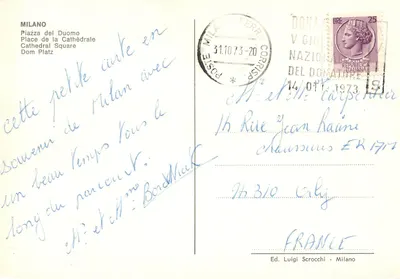 MILANO
Piazza del Duomo
Place de la Cathédrale
Cathedral Square
Dom Platz
cette petite carte en
souvenir de Milan avec
un beau temps tous le
long du parcourt.
Mr et Mme
POSTE MILANO CORRISP
31.10.73-20
V GIORNATA
NAZIONALE
DEL DONATORE
14 OTT. 1973
LIRE 25
Mr et Mme Carpentier
14 Rue Jean Racine
94310 Orly
FRANCE
Ed. Luigi Scrocchi - Milano